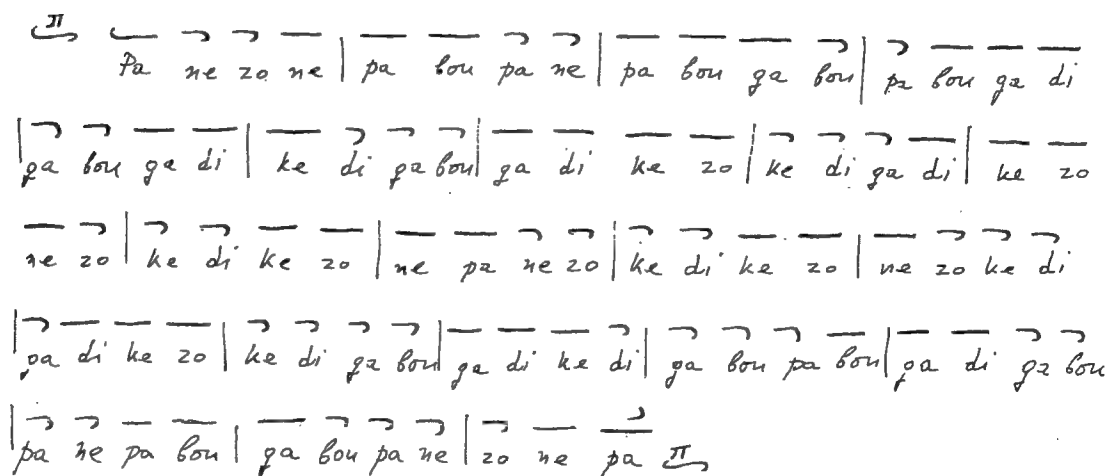 π Pa ne zo ne | pa bou pa ne | pa bou ga bou | pa bou ga di
| ga bou ga di | ke di ga bou | ga di ke zo | ke di ga di | ke zo
ne zo | ke di ke zo | ne pa ne zo | ke di ke zo | ne zo ke di
| ga di ke zo | ke di ga bou | ga di ke di | ga bou pa bou | ga di ga bou
| pa ne pa bou | ga bou pa ne | zo ne pa π